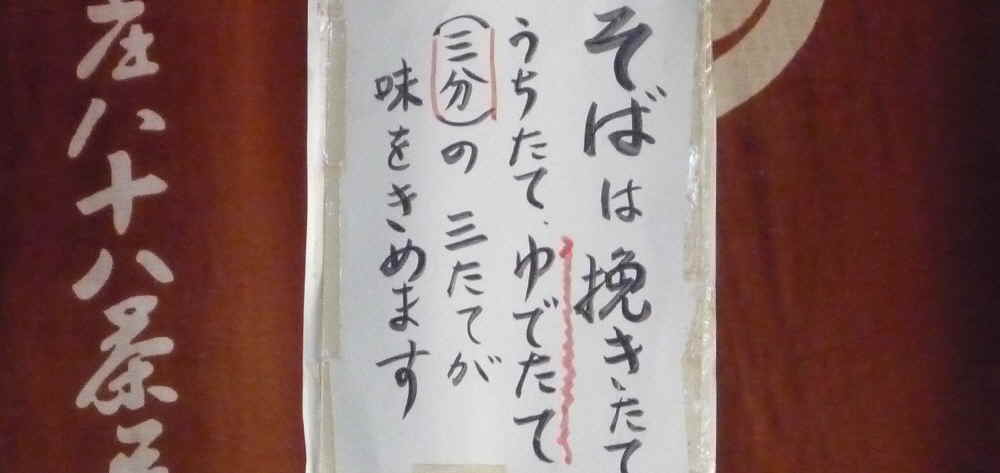 そばは挽きたて
うちたて、ゆでたて
（三分）の三たてが
味をきめます
庄八十八茶